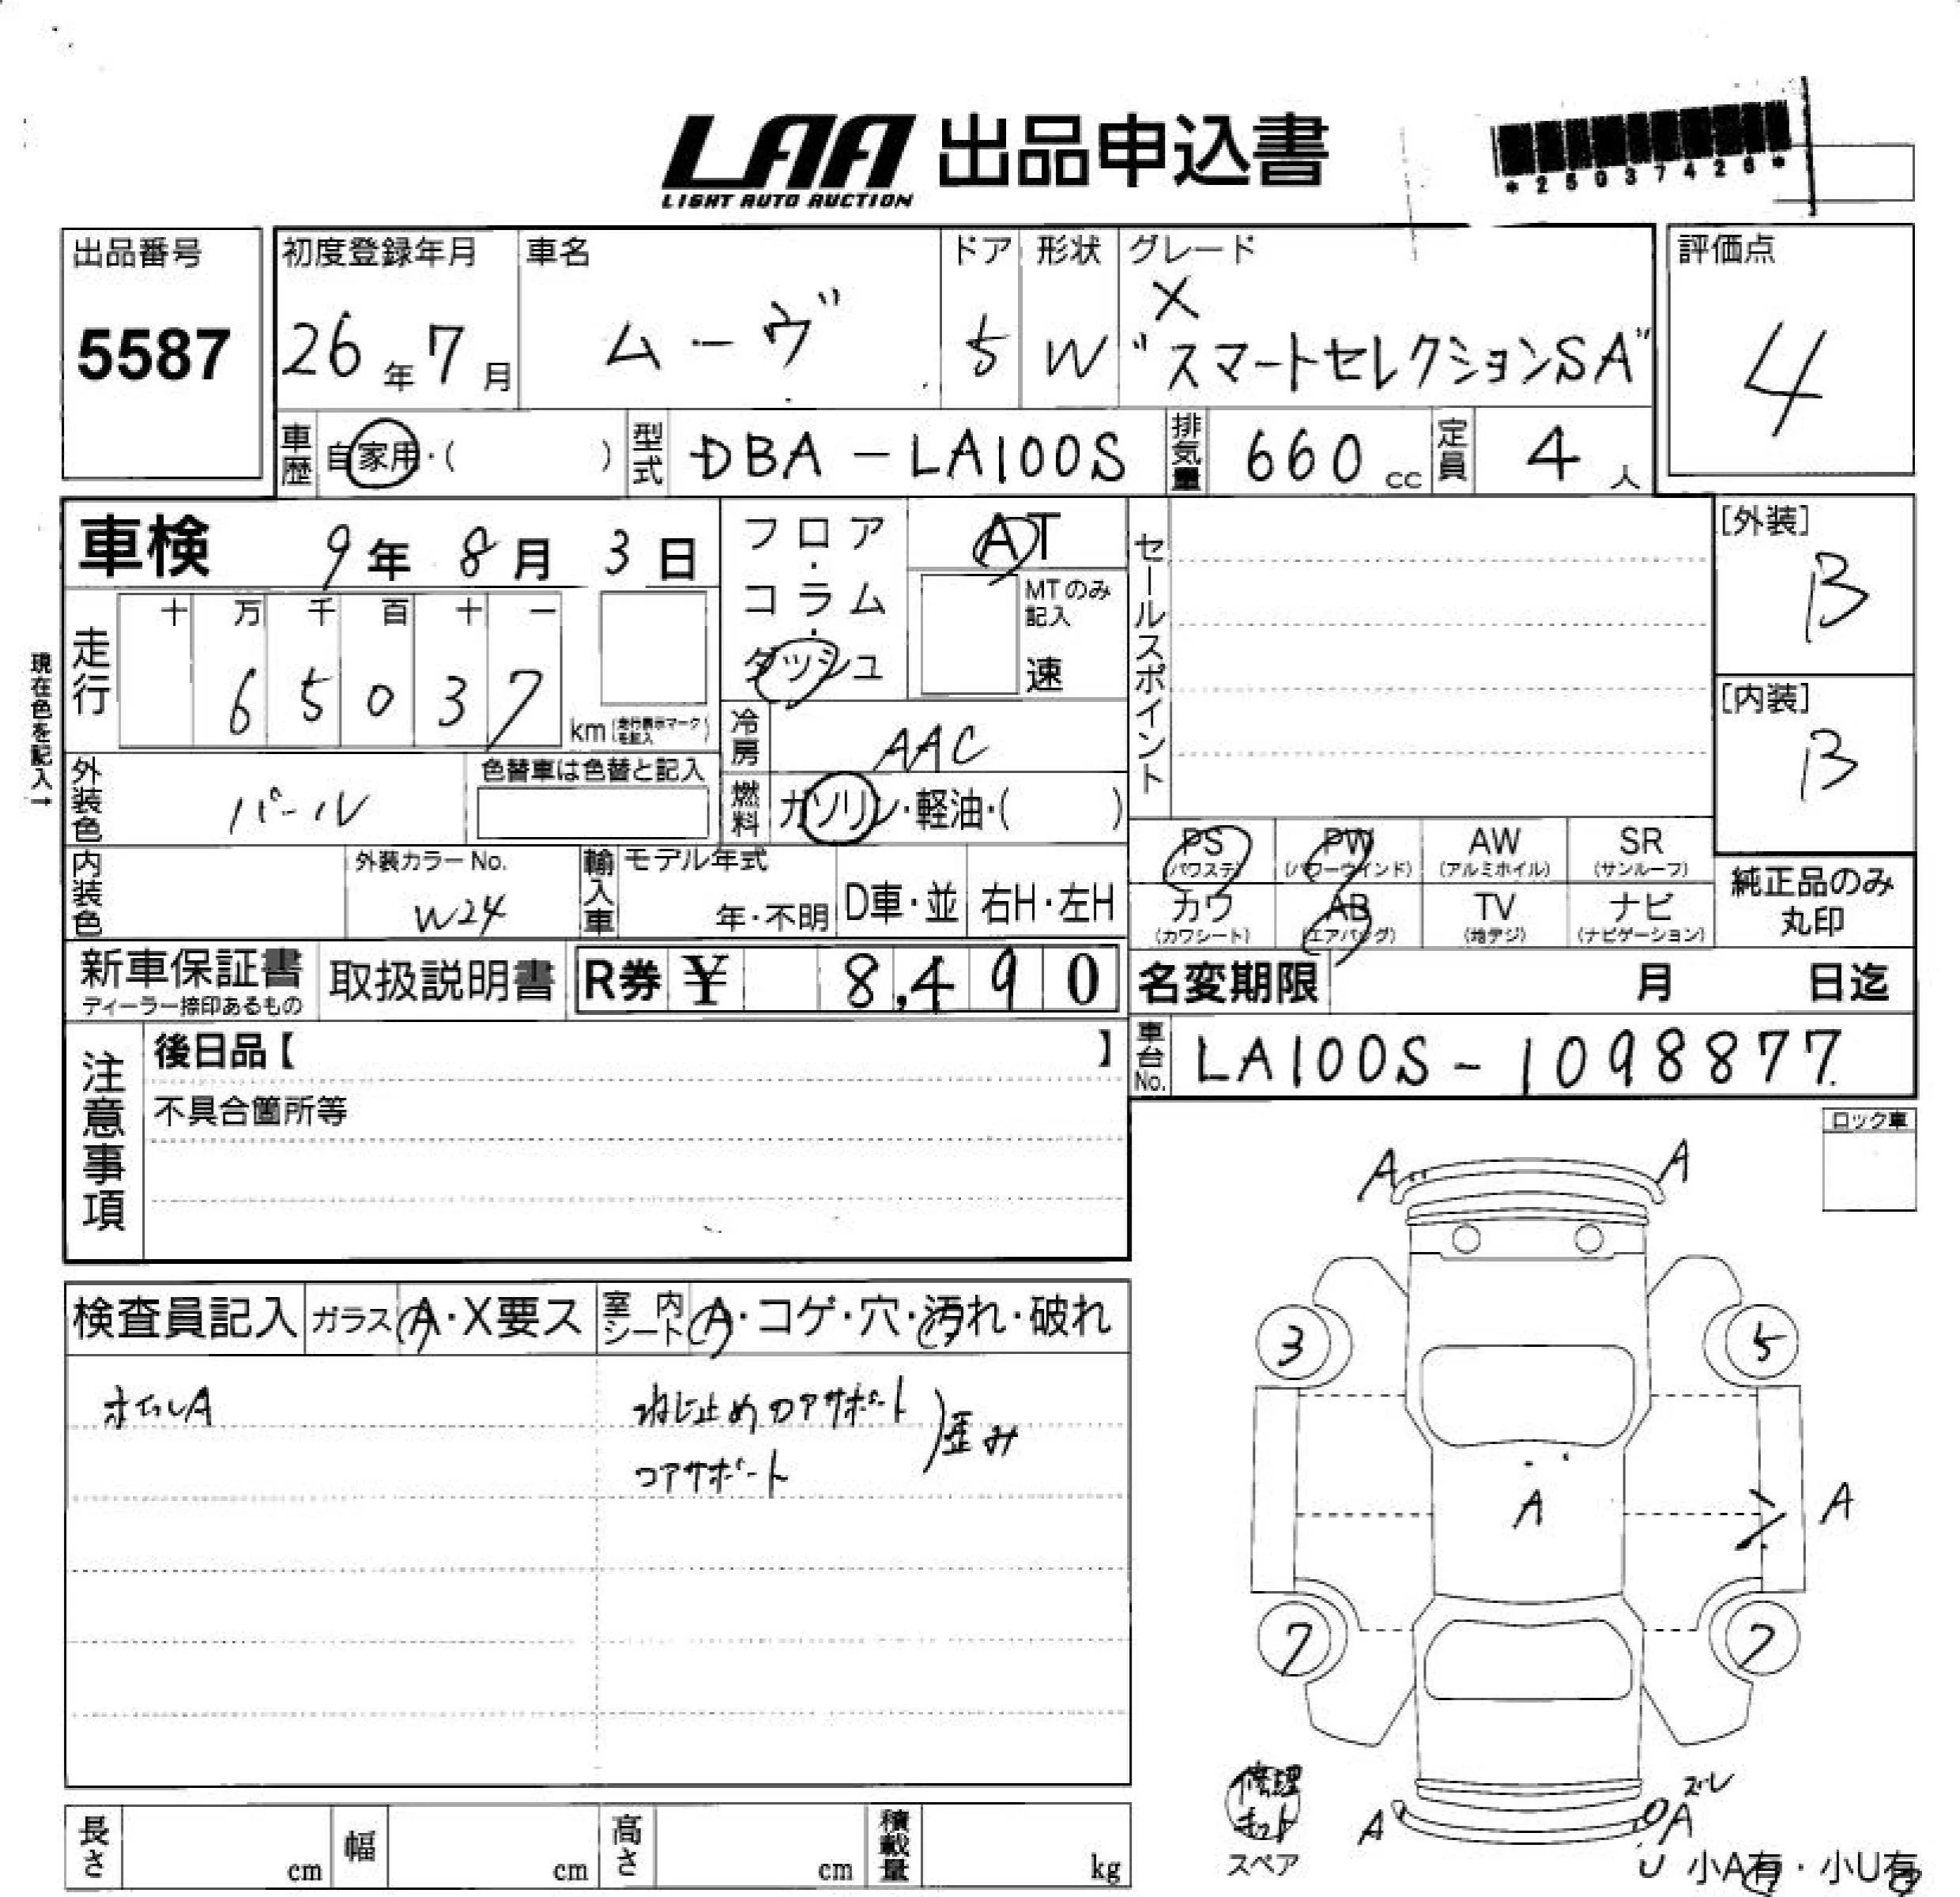 LAA 出品申込書
LIGHT AUTO AUCTION
*25037426*
出品番号
5587
初度登録年月
26年7月
車名
ムーヴ
ドア
5
形状
W
グレード
X
"スマートセレクションSA"
評価点
4
車歴 自家用・( )
型式 DBA-LA100S
排気量 660cc
定員 4人
車検 9年8月3日
フロア・コラム・ダッシュ
AT
MTのみ記入
速
セールスポイント
[外装]
B
[内装]
B
現在色を記入→
走行
十 万 千 百 十 一
6 5 0 3 7
km(走行表示マークを記入)
冷房 AAC
外装色 パール
色替車は色替と記入
燃料 ガソリン・軽油・( )
PS (パワステ)
PW (パワーウインド)
AW (アルミホイル)
SR (サンルーフ)
カワ (カワシート)
AB (エアバッグ)
TV (地デジ)
ナビ (ナビゲーション)
純正品のみ
丸印
内装色
外装カラーNo.
W24
輸入車
モデル年式
年・不明
D車・並
右H・左H
新車保証書
ディーラー捺印あるもの
取扱説明書
R券 ¥ 8,490
名変期限 月 日迄
車台No. LA100S-1098877
注意事項
後日品【 】
不具合箇所等
ロック車
検査員記入
ガラス A・X要ス
室内シート A・コゲ・穴・汚れ・破れ
ホイルA
ねじ止めコアサポート
コアサポート
)歪み
A A
3 5
A A
7 7
修理
キット
スペア
A
ズレ
A
U 小A有・小U有
長さ cm
幅 cm
高さ cm
積載量 kg